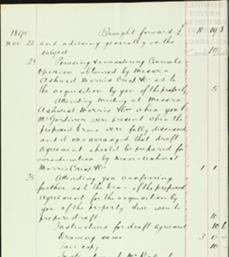 1894 Brought forward £ 18 19 3
Nov. 22 and advising generally on the
subject 10
23 Perusing & considering Counsels
Opinion obtained by Messrs
Ashurst Morris Crisp & Co as to
the acquisition by you of the property 5
Attending meeting at Messrs
Ashurst Morris & Co when you &
Mr Gardiner were present when the
proposed terms were fully discussed
and it was arranged that draft
Agreement should be prepared for
consideration by Messrs Ashurst
Morris Crisp & Co 1 1
25 Attending you conferring
further as to the terms of the proposed
Agreement for the acquisition by
you of the property
prepare draft 10
Instructions for draft Agreement 10
Drawing same 3
Fair copy 10